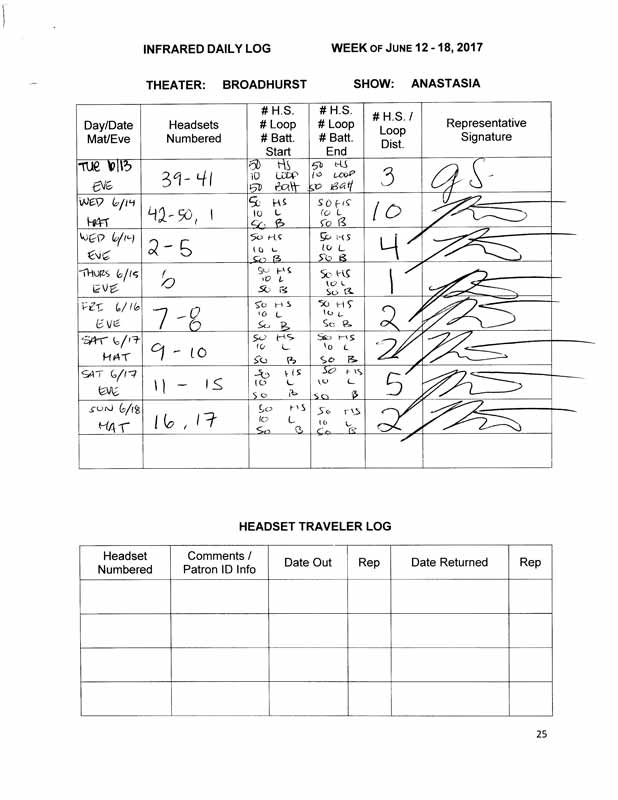 INFRARED DAILY LOG WEEK OF JUNE 12 - 18, 2017
THEATER: BROADHURST SHOW: ANASTASIA
Day/Date Mat/Eve | Headsets Numbered | # H.S. # Loop # Batt. Start | # H.S. # Loop # Batt. End | # H.S. / Loop Dist. | Representative Signature
TUE 6/13 EVE | 39-41 | 50 HS 10 LOOP 50 Batt | 50 HS 10 LOOP 50 Batt | 3 | G S.
WED 6/14 MAT | 42-50, 1 | 50 HS 10 L 50 B | 50 HS 10 L 50 B | 10
WED 6/14 EVE | 2-5 | 50 HS 10 L 50 B | 50 HS 10 L 50 B | 4
THURS 6/15 EVE | 6 | 50 HS 10 L 50 B | 50 HS 10 L 50 B | 1
FRI 6/16 EVE | 7-8 | 50 HS 10 L 50 B | 50 HS 10 L 50 B | 2
SAT 6/17 MAT | 9-10 | 50 HS 10 L 50 B | 50 HS 10 L 50 B | 2
SAT 6/17 EVE | 11-15 | 50 HS 10 L 50 B | 50 HS 10 L 50 B | 5
SUN 6/18 MAT | 16, 17 | 50 HS 10 L 50 B | 50 HS 10 L 50 B | 2
HEADSET TRAVELER LOG
Headset Numbered | Comments / Patron ID Info | Date Out | Rep | Date Returned | Rep
25